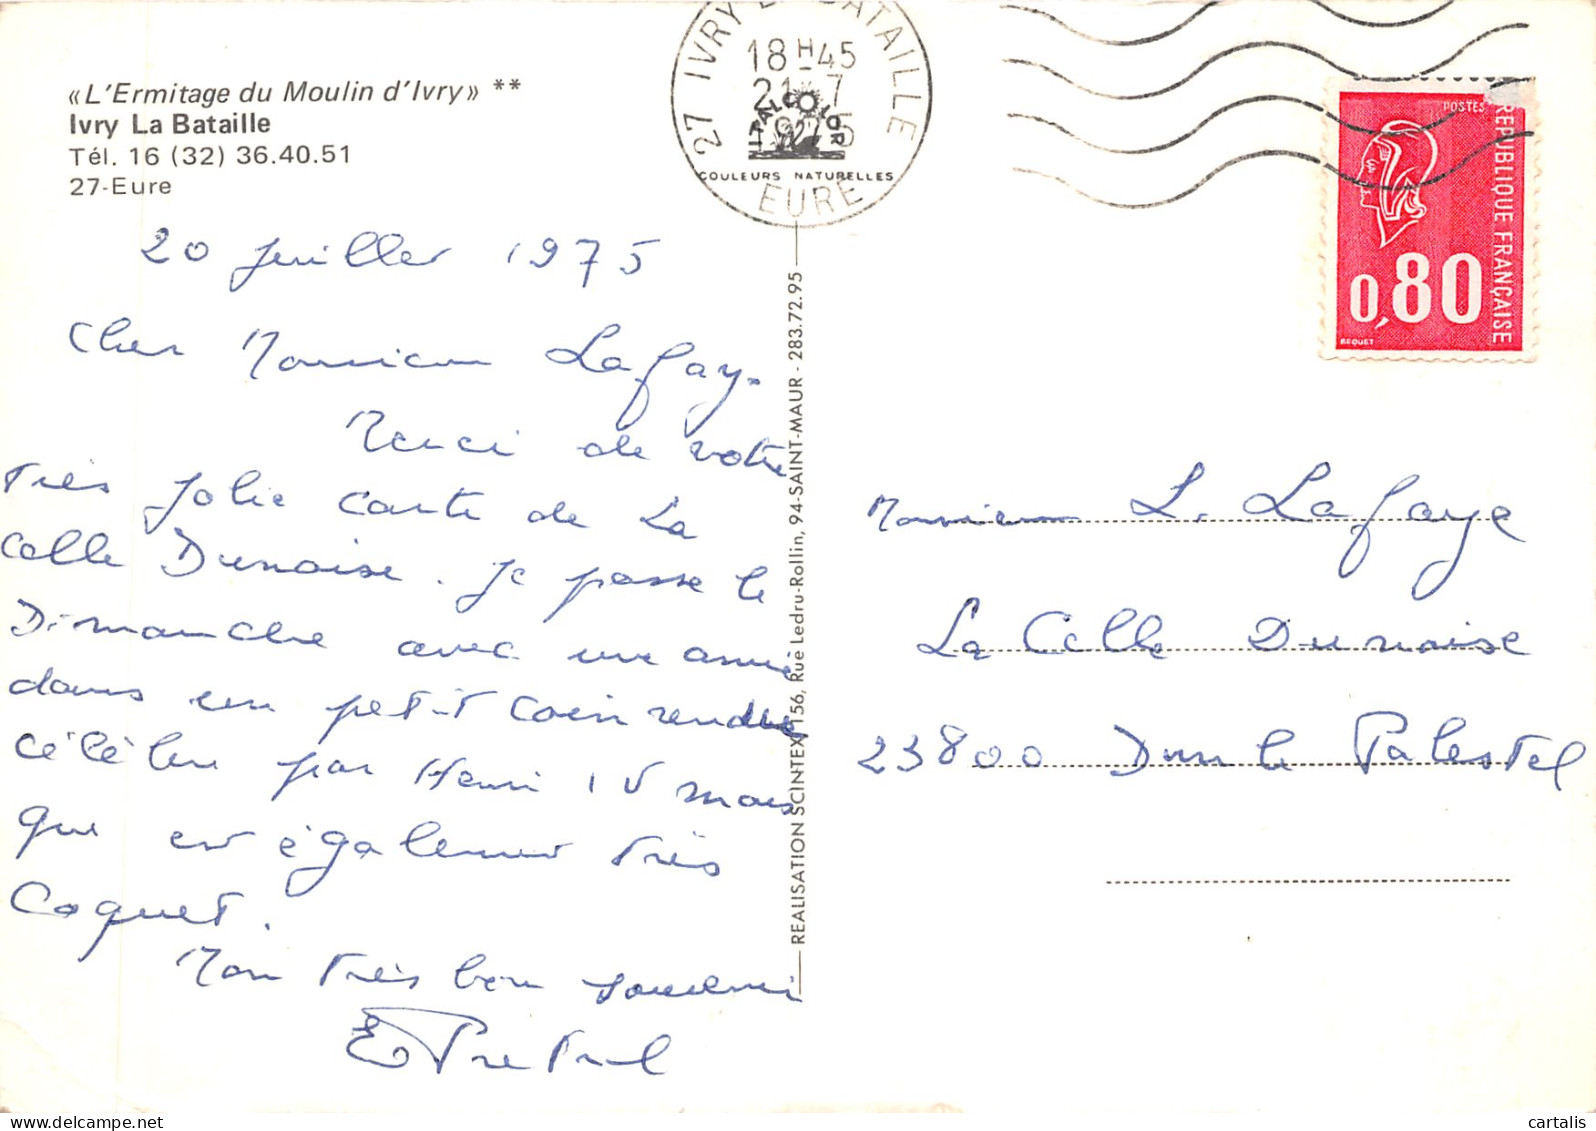 «L'Ermitage du Moulin d'Ivry» **
Ivry La Bataille
Tél. 16 (32) 36.40.51
27-Eure
20 juillet 1975
Cher Monsieur Lafay.
Merci de votre
très jolie carte de La
Celle Dunoise. Je passe le
Dimanche avec une amie
dans un petit coin rendue
célèbre par Henri IV mais
que est également très
Coquet.
Mon très bon souvenir
27 IVRY LA BATAILLE
18H45
21-7
1975
EURE
ITALCOLOR
COULEURS NATURELLES
REALISATION SCINTEX, 156, Rue Ledru-Rollin, 94-SAINT-MAUR - 283.72.95
POSTES
REPUBLIQUE FRANÇAISE
0,80
BEQUET
Monsieur L. Lafaye
La Celle Dunoise
23800 Dun le Palestel
cartalis